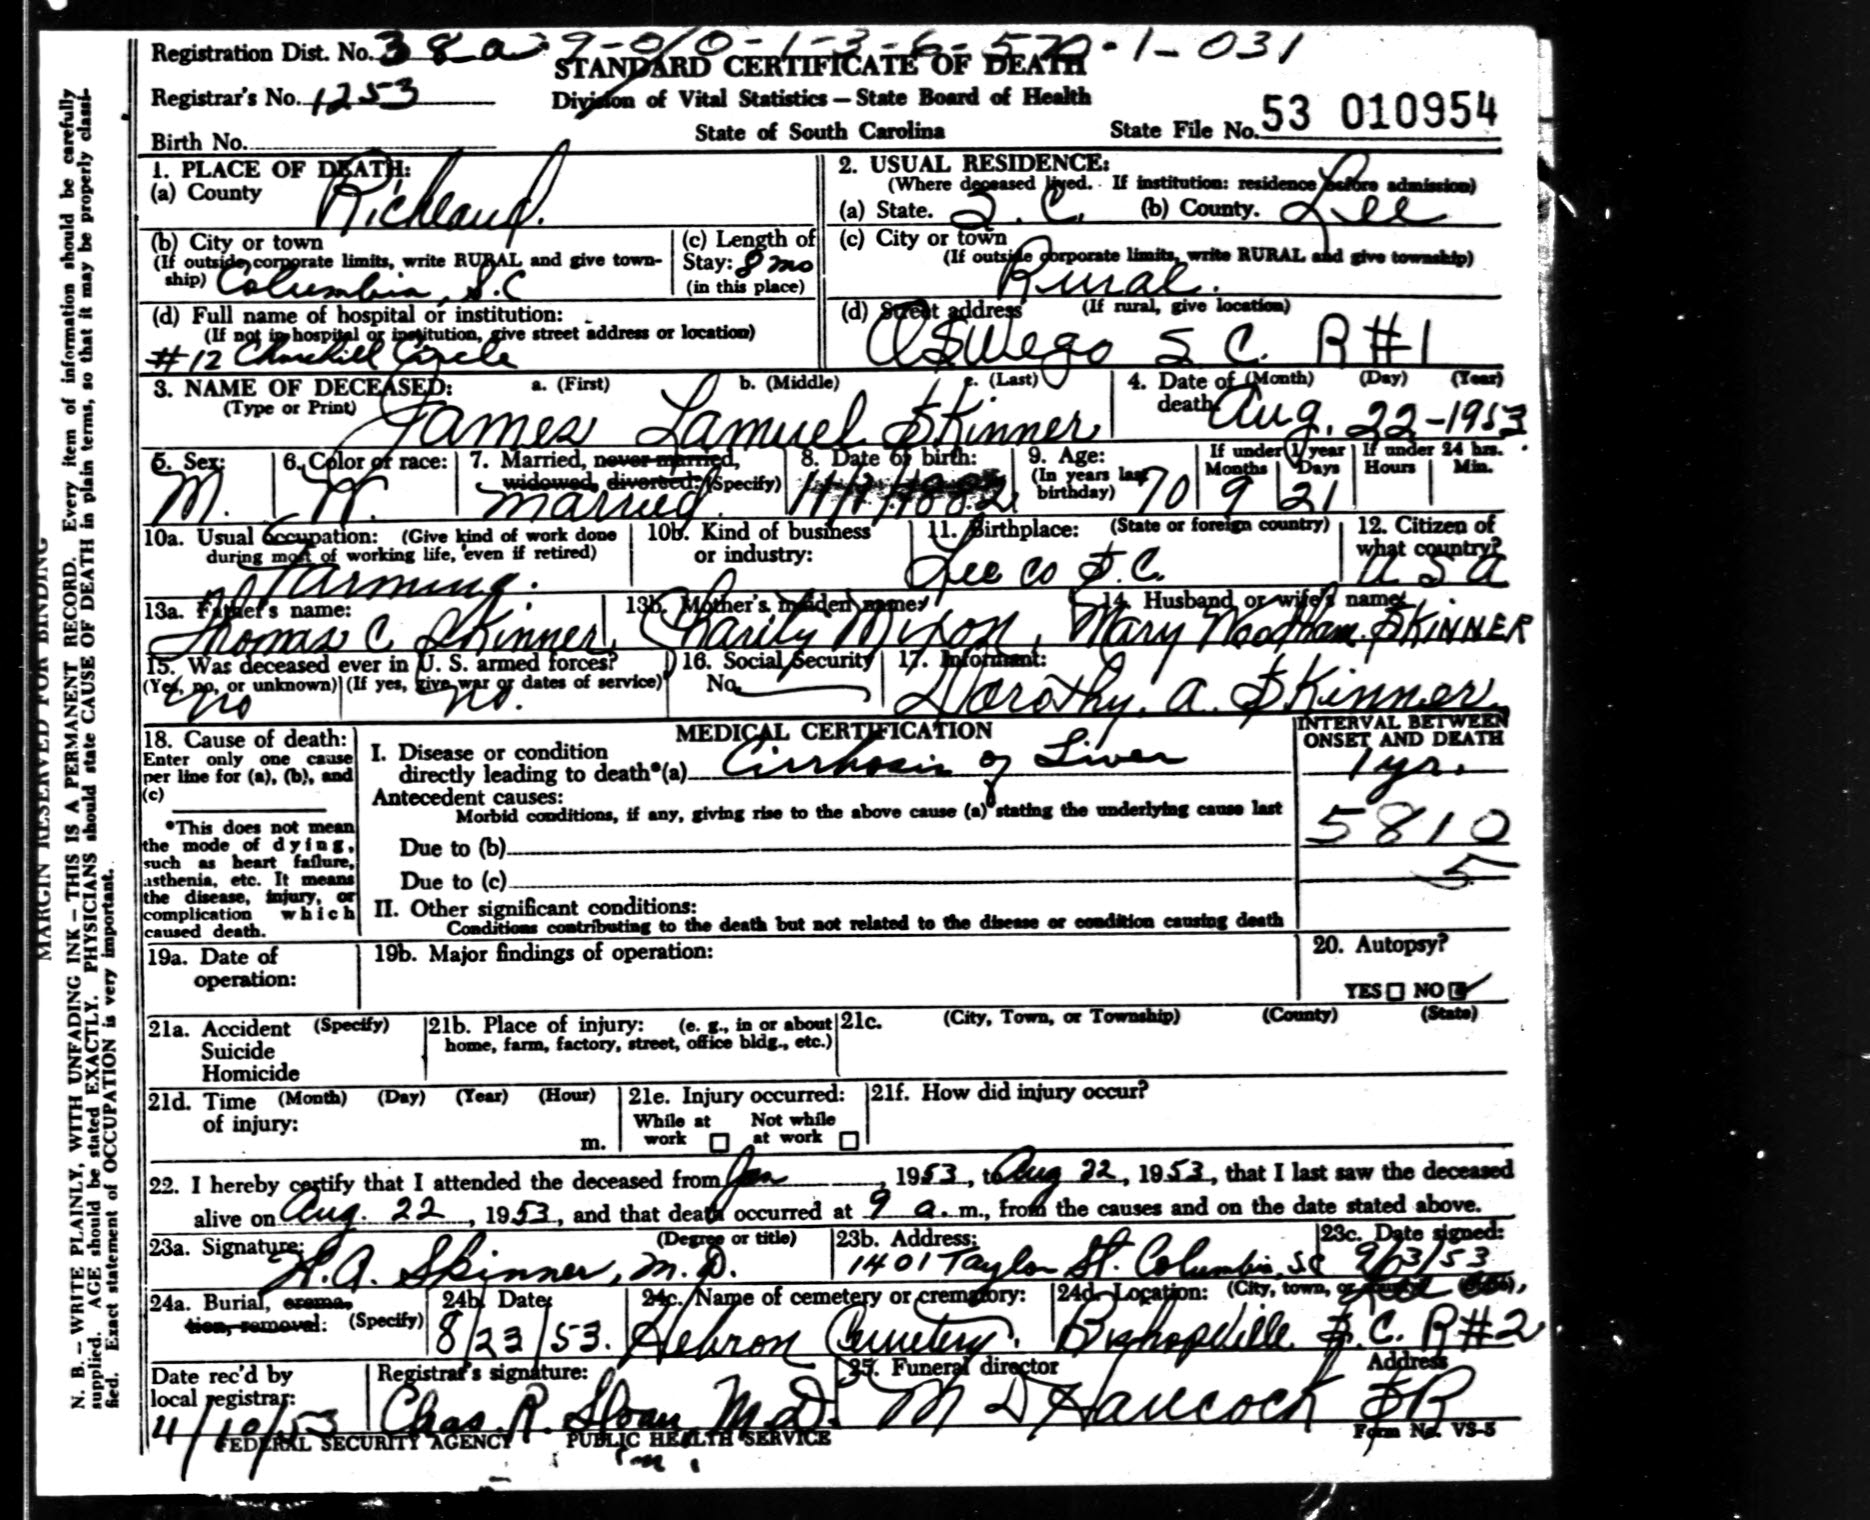 Registration Dist. No. 38a 9-0/0-1-3-6-570-1-031
STANDARD CERTIFICATE OF DEATH
Registrar's No. 1253
Division of Vital Statistics — State Board of Health
Birth No.
State of South Carolina
State File No. 53 010954
1. PLACE OF DEATH:
(a) County Richland
2. USUAL RESIDENCE:
(Where deceased lived. If institution: residence before admission)
(a) State. S.C. (b) County. Lee
(b) City or town
(If outside corporate limits, write RURAL and give town-
ship) Columbia, S.C
(c) Length of
Stay: 8 mo
(in this place)
(c) City or town
(If outside corporate limits, write RURAL and give township)
Rural.
(d) Full name of hospital or institution:
(If not in hospital or institution, give street address or location)
#12 Churchill Circle
(d) Street address (If rural, give location)
Oswego S C. R#1
3. NAME OF DECEASED: a. (First) b. (Middle) c. (Last)
(Type or Print) James Samuel Skinner
4. Date of (Month) (Day) (Year)
death Aug. 22-1953
5. Sex:
M.
6. Color of race:
W.
7. Married, never married,
widowed, divorced: (Specify)
married.
8. Date of birth:
11/1/1882
9. Age:
(In years last
birthday) 70
If under 1 year
Months Days
9 21
If under 24 hrs.
Hours Min.
10a. Usual Occupation: (Give kind of work done
during most of working life, even if retired)
Farming.
10b. Kind of business
or industry:
11. Birthplace: (State or foreign country)
Lee Co S.C.
12. Citizen of
what country?
U S A
13a. Father's name:
Thomas C. Skinner,
13b. Mother's maiden name:
Charity Mixon,
14. Husband or wife's name:
Mary Woodham SKINNER
15. Was deceased ever in U. S. armed forces?
(Yes, no, or unknown) (If yes, give war or dates of service)
no no.
16. Social Security
No.
17. Informant:
Dorothy. A. Skinner
18. Cause of death:
Enter only one cause
per line for (a), (b), and
(c)
*This does not mean
the mode of dying,
such as heart failure,
asthenia, etc. It means
the disease, injury, or
complication which
caused death.
MEDICAL CERTIFICATION
I. Disease or condition
directly leading to death*(a) Cirrhosis of Liver
Antecedent causes:
Morbid conditions, if any, giving rise to the above cause (a) stating the underlying cause last
Due to (b)
Due to (c)
II. Other significant conditions:
Conditions contributing to the death but not related to the disease or condition causing death
INTERVAL BETWEEN
ONSET AND DEATH
1 yr.
5810
5
19a. Date of
operation:
19b. Major findings of operation:
20. Autopsy?
YES NO
21a. Accident (Specify)
Suicide
Homicide
21b. Place of injury: (e. g., in or about
home, farm, factory, street, office bldg., etc.)
21c. (City, Town, or Township) (County) (State)
21d. Time (Month) (Day) (Year) (Hour)
of injury: m.
21e. Injury occurred:
While at Not while
work at work
21f. How did injury occur?
22. I hereby certify that I attended the deceased from Jan, 1953, to Aug 22, 1953, that I last saw the deceased
alive on Aug. 22, 1953, and that death occurred at 9 a.m., from the causes and on the date stated above.
23a. Signature: (Degree or title)
H.A. Skinner, M.D.
23b. Address:
1401 Taylor St. Columbia, SC
23c. Date signed:
9/3/53
24a. Burial, crema-
tion, removal: (Specify)
24b. Date:
8/23/53.
24c. Name of cemetery or crematory:
Hebron Cemetery.
24d. Location: (City, town,
Bishopville S.C. R#2
Date rec'd by
local registrar:
4/10/53
Registrar's signature:
Chas. R. Sloan, M.D.
25. Funeral director Address
M D Hancock SR
FEDERAL SECURITY AGENCY PUBLIC HEALTH SERVICE
Form No. VS-5
MARGIN RESERVED FOR BINDING
N. B. — WRITE PLAINLY, WITH UNFADING INK — THIS IS A PERMANENT RECORD. Every item of information should be carefully
supplied. AGE should be stated EXACTLY. PHYSICIANS should state CAUSE OF DEATH in plain terms, so that it may be properly classi-
fied. Exact statement of OCCUPATION is very important.